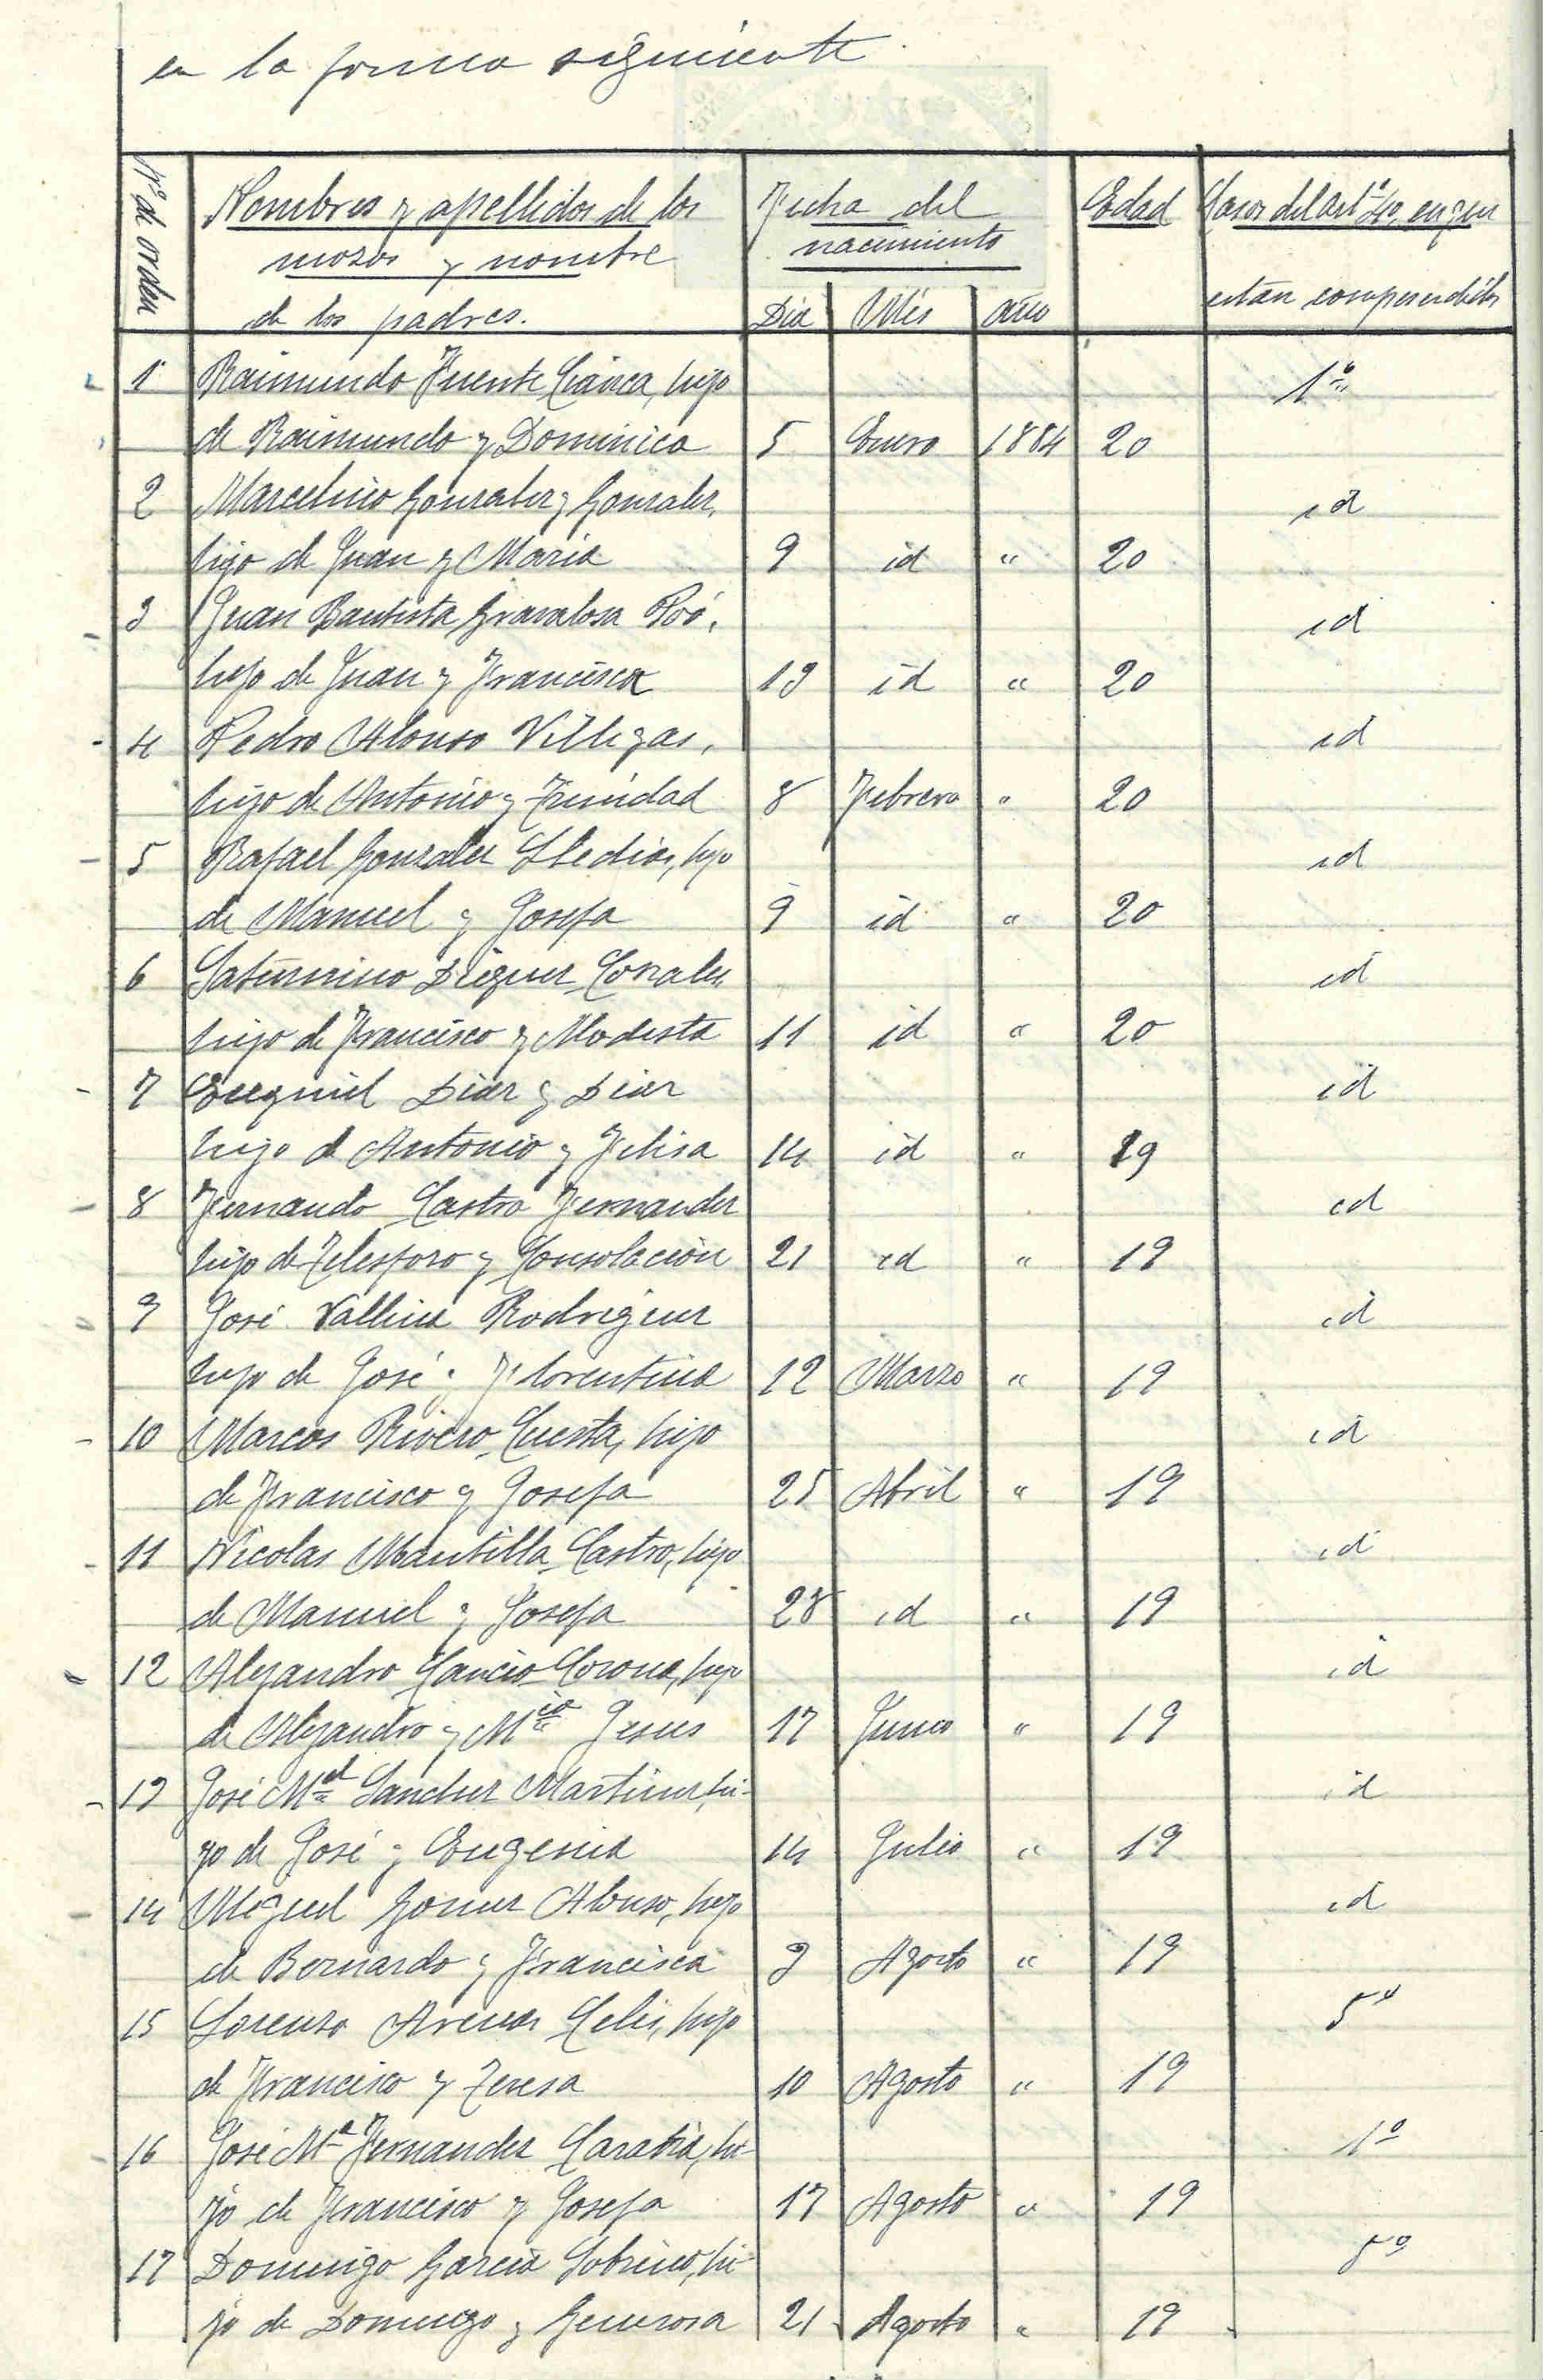 en la forma siguiente.
Nº de orden
Nombres y apellidos de los
mozos y nombre
de los padres.
Fecha del
nacimiento
Dia Mes año
Edad
Casos del artº 40, en que
estan comprendidos
1 Raimundo Fuente Cianca, hijo 1º
de Raimundo y Dominica 5 Enero 1884 20
2 Marcelino Gonzalez y Gonzalez, id
hijo de Juan y Maria 9 id " 20
3 Juan Bautista Gravalosa Roó, id
hijo de Juan y Francisca 13 id " 20
4 Pedro Alonso Villegas, id
hijo de Antonio y Trinidad 8 Febrero " 20
5 Rafael Gonzalez hijo id
de Manuel y Josefa 9 id " 20
6 Saturnino Dieguez Corrales, id
hijo de Francisco y Modesta 11 id " 20
7 Ezequiel Diaz y Diaz id
hijo d Antonio y Felisa 14 id " 19
8 Fernando Castro Fernandez id
hijo de Telesforo y Consolación 21 id " 19
9 José Vallina Rodriguez id
hijo de José y Florentina 12 Marzo " 19
10 Marcos Rivero Cuesta, hijo id
de Francisco y Josefa 25 Abril " 19
11 Nicolas Mantilla Castro, hijo id
de Manuel y Josefa 28 id " 19
12 Alejandro Cancio Corona, hijo id
de Alejandro y Mª Jesus 17 Junio " 19
13 José Mel Sanchez Martinez, hi- id
jo de José y Eugenia 14 Julio " 19
14 Miguel Gomez Alonso, hijo id
de Bernardo y Francisca 3 Agosto " 19
15 Lorenzo Arenas Celis, hijo 5º
de Francisco y Teresa 10 Agosto " 19
16 José Mª Fernandez hi- 1º
jo de Francisco y Josefa 17 Agosto " 19
17 Domingo Garcia Sobrino, hi- 5º
jo de Domingo y Generosa 21 Agosto " 19